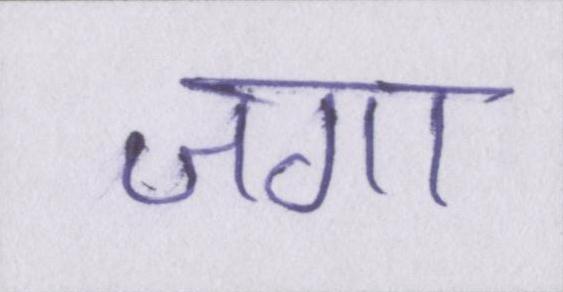 जगा